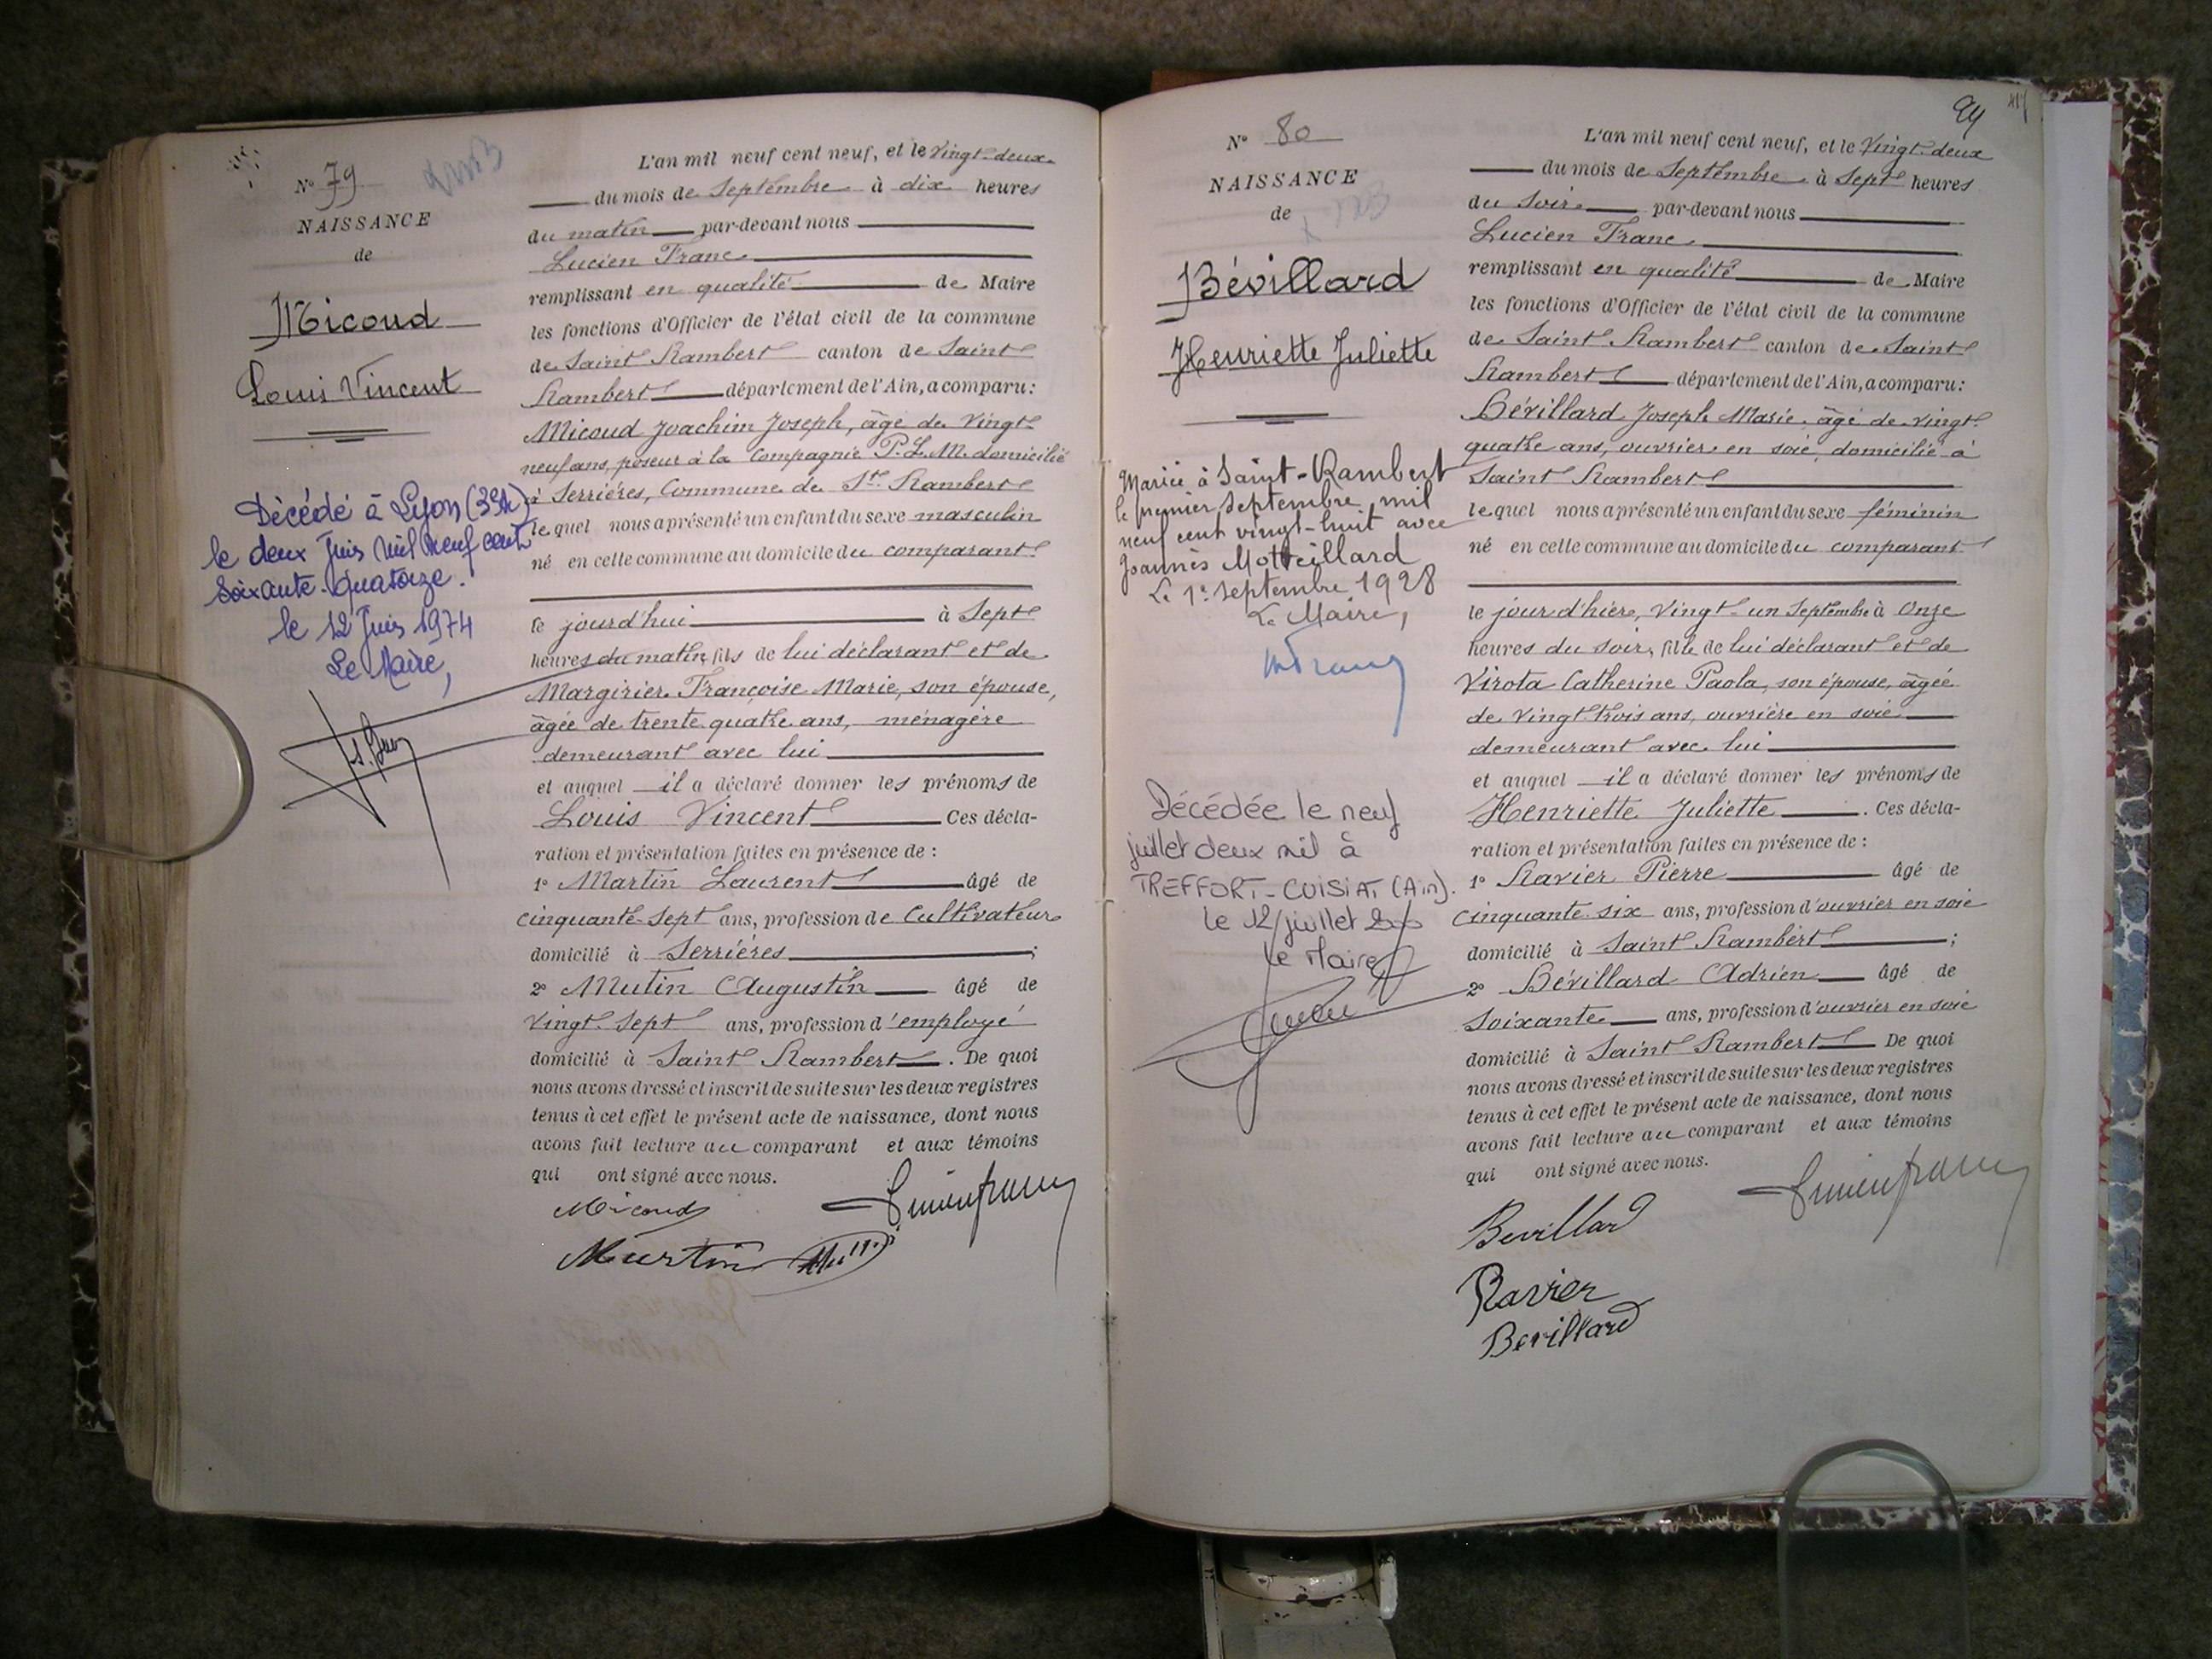 N° 79
NAISSANCE
de
Micoud
Louis Vincent
Décédé à Lyon (3e A)
le deux Juin mil neuf cent
soixante-quatorze.
le 12 Juin 1974
Le Maire,
L'an mil neuf cent neuf, et le vingt-deux
du mois de Septembre à dix heures
du matin par-devant nous
Lucien Franc
remplissant en qualité de Maire
les fonctions d'Officier de l'état civil de la commune
de Saint Rambert canton de Saint
Rambert département de l'Ain, a comparu:
Micoud Joachim Joseph, âgé de vingt
neuf ans, poseur à la Compagnie P.L.M. domicilié
à Serrières, Commune de St Rambert
lequel nous a présenté un enfant du sexe masculin
né en cette commune au domicile du comparant
le jourd'hui à Sept
heures du matin, fils de lui déclarant et de
Margirier Françoise Marie, son épouse,
âgée de trente quatre ans, ménagère
demeurant avec lui
et auquel il a déclaré donner les prénoms de
Louis Vincent Ces décla-
ration et présentation faites en présence de :
1° Martin Laurent âgé de
cinquante-sept ans, profession de Cultivateur
domicilié à Serrières ;
2° Mutin Augustin âgé de
vingt-sept ans, profession d'employé
domicilié à Saint Rambert. De quoi
nous avons dressé et inscrit de suite sur les deux registres
tenus à cet effet le présent acte de naissance, dont nous
avons fait lecture au comparant et aux témoins
qui ont signé avec nous.
Micoud Lucien franc
Martin
94
N° 80
NAISSANCE
de
Bévillard
Henriette Juliette
Mariée à Saint-Rambert
le premier septembre mil
neuf cent vingt-huit avec
Joannès Motteillard
Le 1er septembre 1928
Le Maire,
Décédée le neuf
juillet deux mil à
TREFFORT-CUISIAT (Ain).
le 12/juillet 2000
Le Maire
L'an mil neuf cent neuf, et le vingt-deux
du mois de Septembre à Sept heures
du soir par-devant nous
Lucien Franc
remplissant en qualité de Maire
les fonctions d'Officier de l'état civil de la commune
de Saint Rambert canton de Saint
Rambert département de l'Ain, a comparu:
Bévillard Joseph Marie, âgé de vingt
quatre ans, ouvrier en soie, domicilié à
Saint Rambert
lequel nous a présenté un enfant du sexe féminin
né en cette commune au domicile du comparant
le jour d'hier, vingt-un Septembre à Onze
heures du soir, fille de lui déclarant et de
Virota Catherine Paola, son épouse, âgée
de vingt trois ans, ouvrière en soie
demeurant avec lui
et auquel il a déclaré donner les prénoms de
Henriette Juliette . Ces décla-
ration et présentation faites en présence de :
1° Ravier Pierre âgé de
cinquante six ans, profession d'ouvrier en soie
domicilié à Saint Rambert ;
2° Bévillard Adrien âgé de
soixante ans, profession d'ouvrier en soie
domicilié à Saint Rambert De quoi
nous avons dressé et inscrit de suite sur les deux registres
tenus à cet effet le présent acte de naissance, dont nous
avons fait lecture au comparant et aux témoins
qui ont signé avec nous.
Lucien franc
Bevillard
Ravier
Bevillard